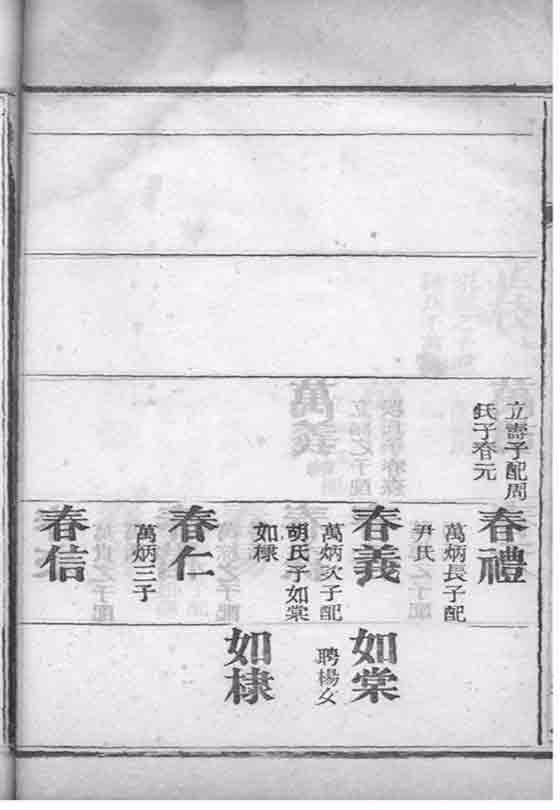 立壽子配周
氏子春元
春禮
萬炳長子配
尹氏
春義
萬炳次子配
胡氏子如棠
如棣
春仁
萬炳三子
春信
如棠
聘楊女
如棣